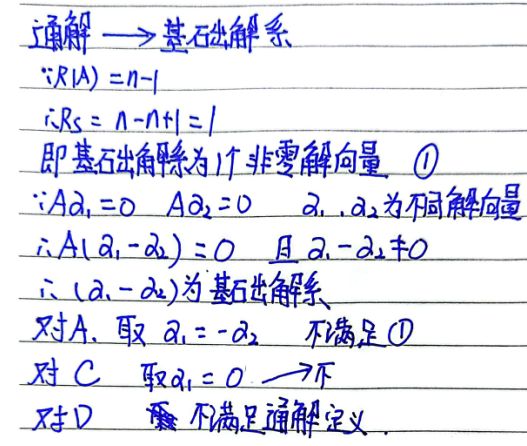 通解 → 基础解系
∵R(A) = n-1
∴Rs = n-n+1 = 1
即基础解系为1个非零解向量 ①
∵Aα₁=0 Aα₂=0 α₁、α₂为不同解向量
∴A(α₁-α₂)=0 且 α₁-α₂≠0
∴(α₁-α₂)为基础解系
对A、取 α₁=-α₂ 不满足①
对 C 取α₁=0 → 不
对D 不满足通解定义.